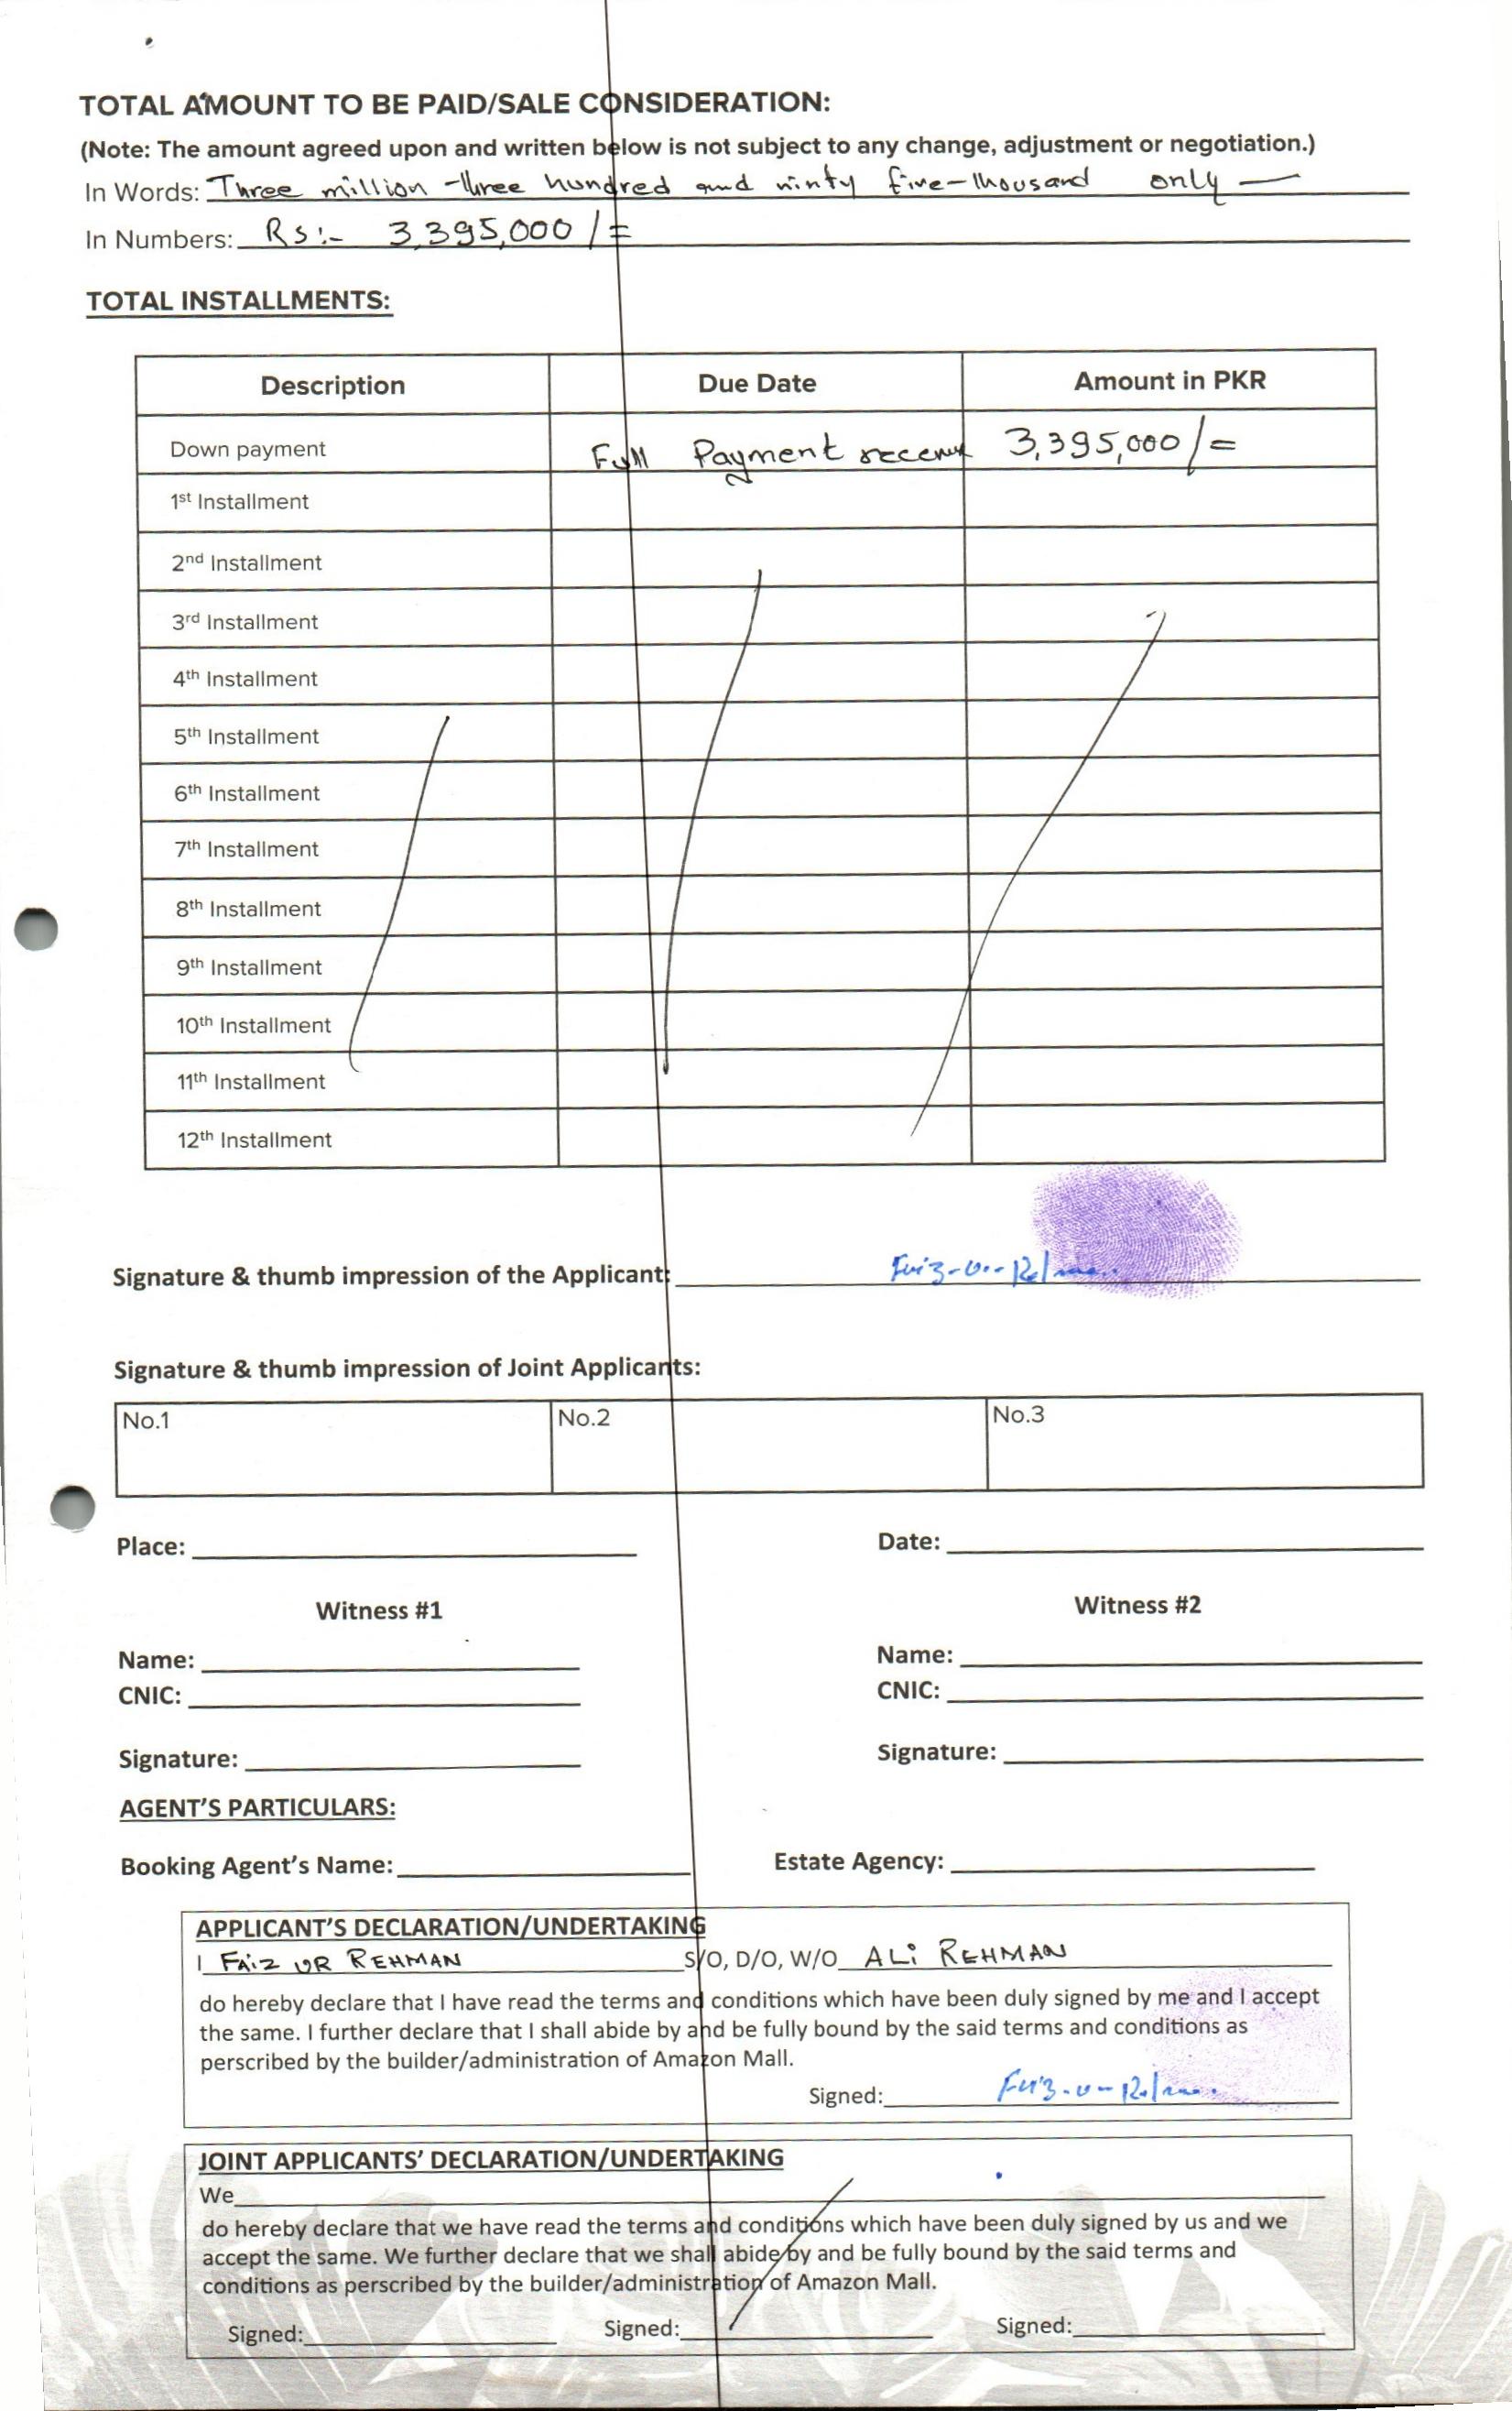 TOTAL AMOUNT TO BE PAID/SALE CONSIDERATION:
(Note: The amount agreed upon and written below is not subject to any change, adjustment or negotiation.)
In Words: Three million three hundred and ninty five thousand only
In Numbers: Rs:- 3,395,000/=
TOTAL INSTALLMENTS:
Description Due Date Amount in PKR
Down payment Full Payment 3,395,000/=
1st Installment
2nd Installment
3rd Installment
4th Installment
5th Installment
6th Installment
7th Installment
8th Installment
9th Installment
10th Installment
11th Installment
12th Installment
Signature & thumb impression of the Applicant:
Signature & thumb impression of Joint Applicants:
No.1 No.2 No.3
Place: Date:
Witness #1 Witness #2
Name: Name:
CNIC: CNIC:
Signature: Signature:
AGENT'S PARTICULARS:
Booking Agent's Name: Estate Agency:
APPLICANT'S DECLARATION/UNDERTAKING
I FAiZ UR REHMAN S/O, D/O, W/O ALi REHMAN
do hereby declare that I have read the terms and conditions which have been duly signed by me and I accept
the same. I further declare that I shall abide by and be fully bound by the said terms and conditions as
perscribed by the builder/administration of Amazon Mall.
Signed:
JOINT APPLICANTS' DECLARATION/UNDERTAKING
We
do hereby declare that we have read the terms and conditions which have been duly signed by us and we
accept the same. We further declare that we shall abide by and be fully bound by the said terms and
conditions as perscribed by the builder/administration of Amazon Mall.
Signed: Signed: Signed: